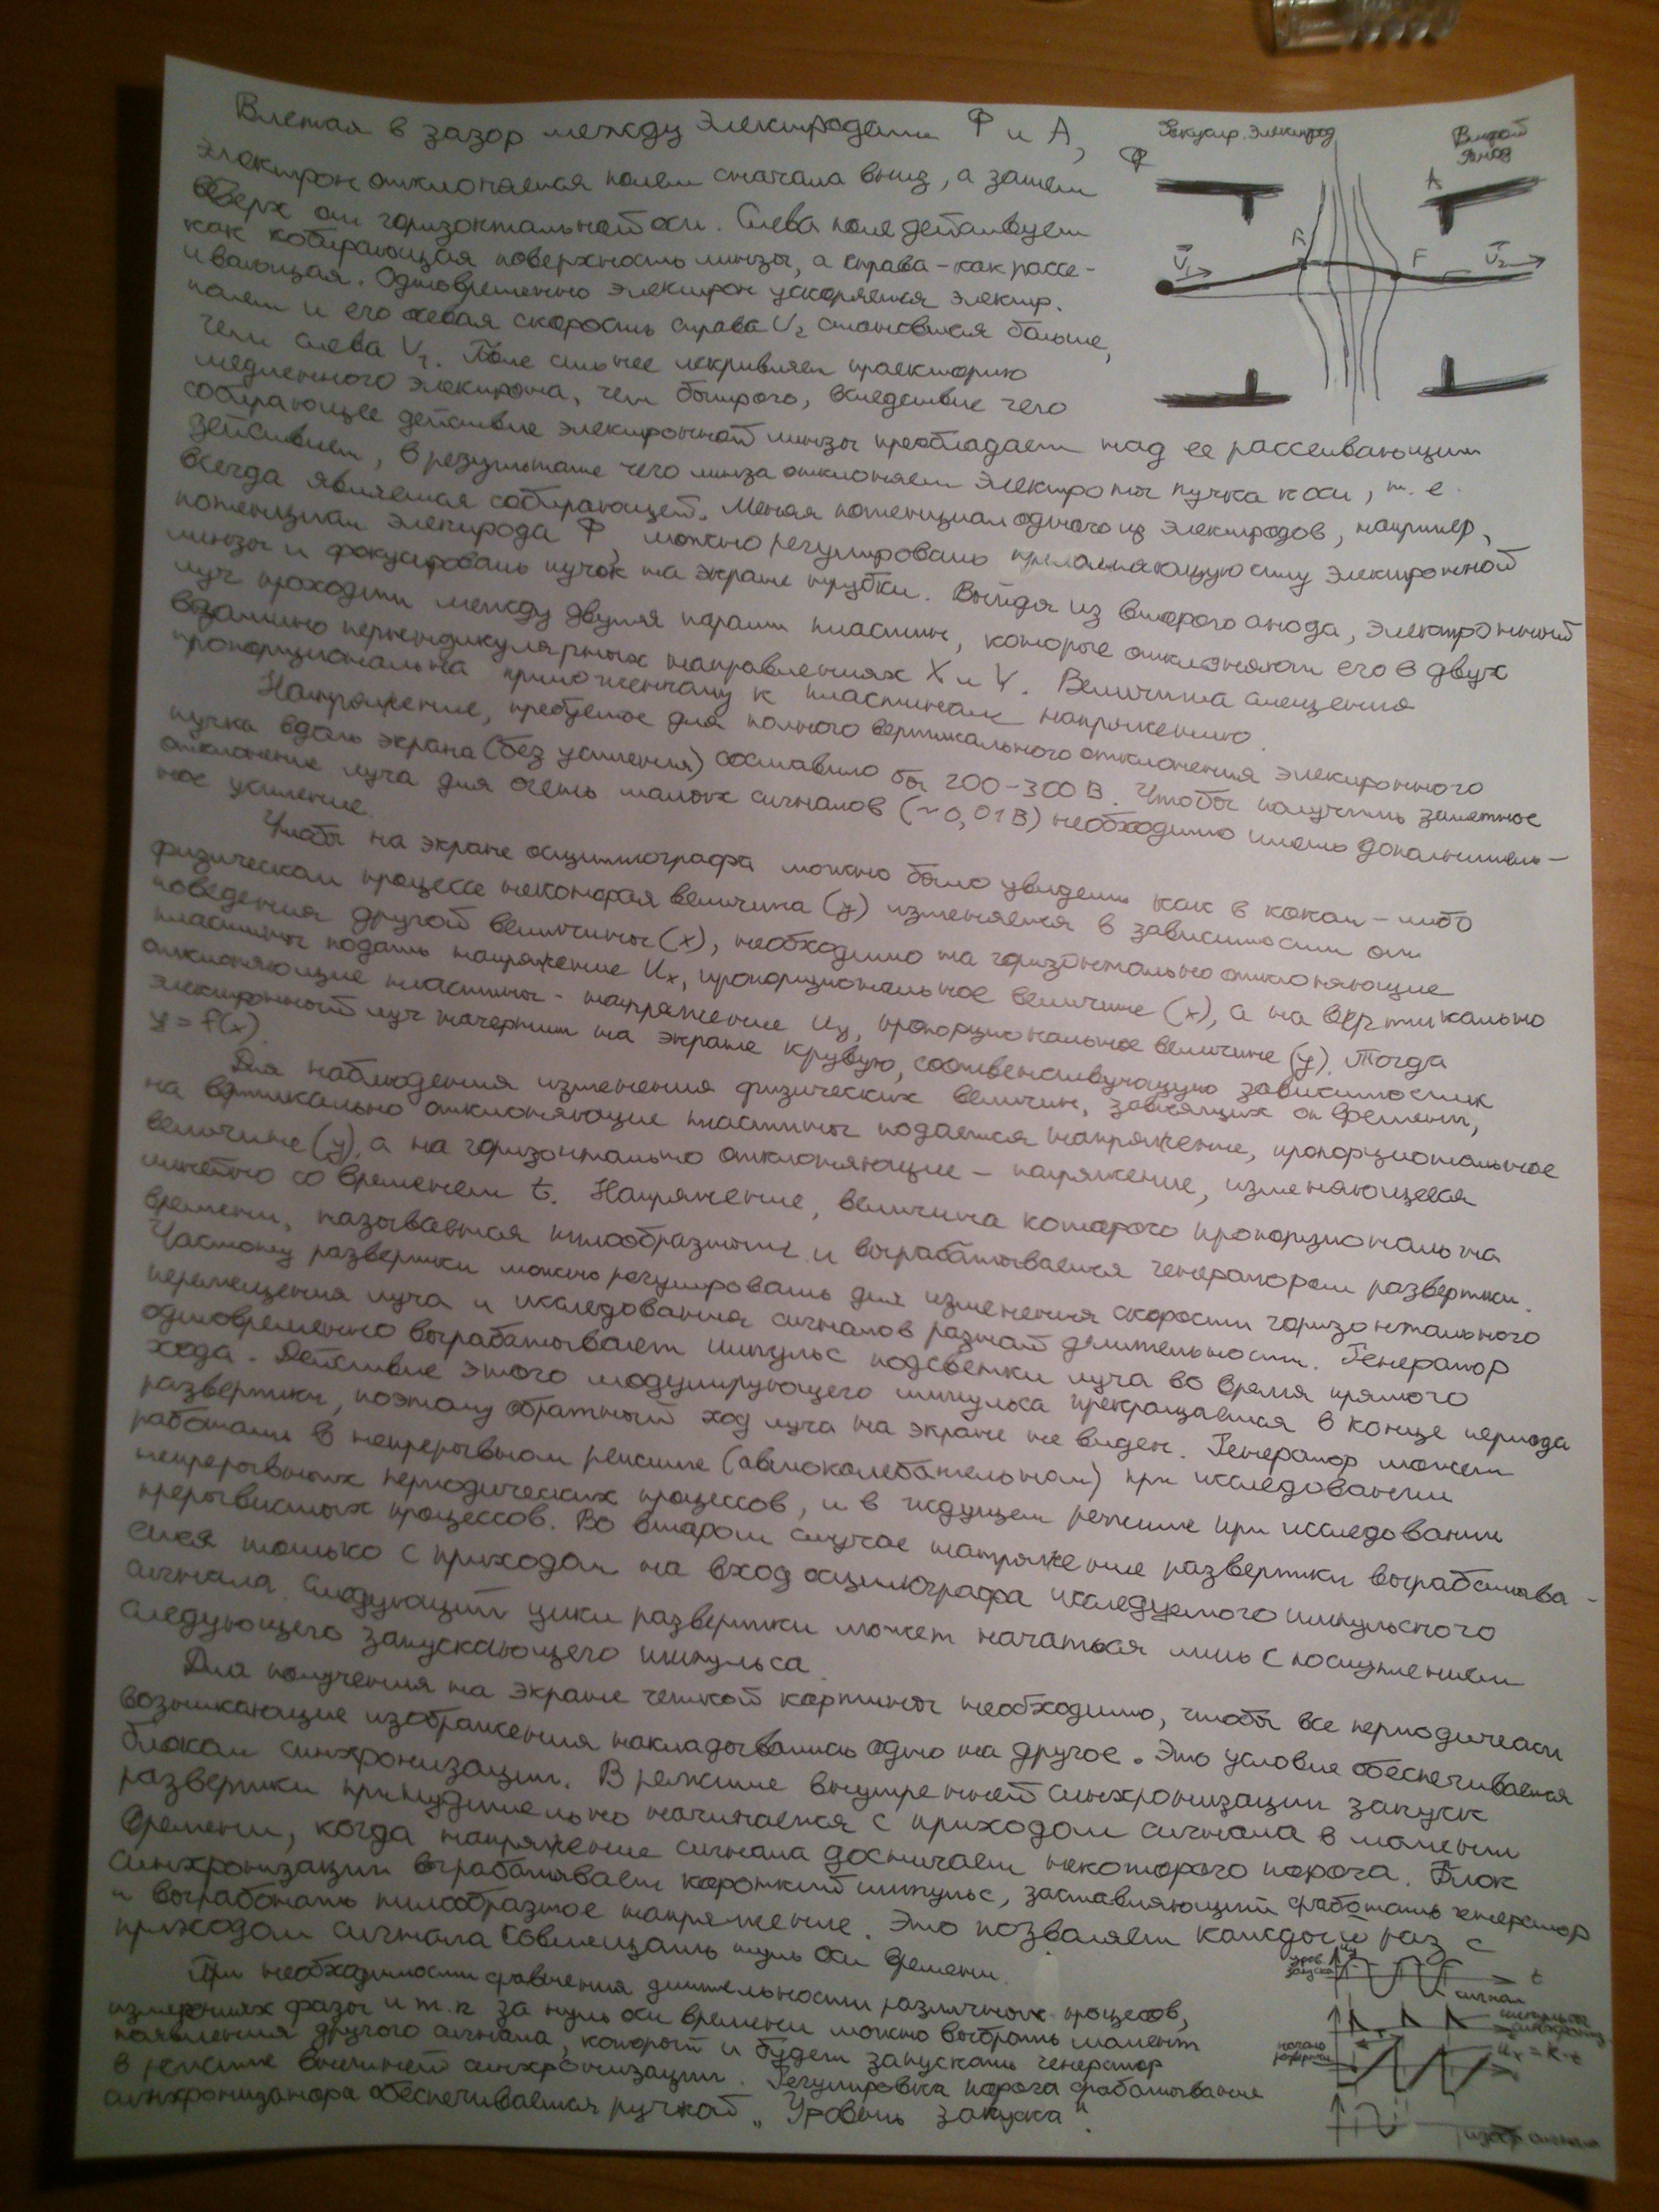 Влетая в зазор между электродами Ф и А,
электрон отклоняется полем сначала вниз, а затем
вверх от горизонтальной оси. Слева поле действует
как собирающая поверхность линзы, а справа - как рассе-
ивающая. Одновременно электрон ускоряется электр.
полем и его осевая скорость справа V₂ становится больше,
чем слева V₁. Поле сильнее искривляет траекторию
медленного электрона, чем быстрого, вследствие чего
собирающее действие электронной линзы преобладает над ее рассеивающим
действием, в результате чего линза отклоняет электроны пучка к оси, т. е.
всегда является собирающей. Меняя потенциал одного из электродов, например,
потенциал электрода Ф, можно регулировать преломляющую силу электронной
линзы и фокусировать пучок на экране трубки. Выйдя из второго анода, электронный
луч проходит между двумя парами пластин, которые отклоняют его в двух
взаимно перпендикулярных направлениях X и Y. Величина смещения
пропорциональна приложенному к пластинам напряжению.
Напряжение, требуемое для полного вертикального отклонения электронного
пучка вдоль экрана (без усиления) составило бы 200-300 В. Чтобы получить заметное
отклонение луча для очень малых сигналов (~0,01В) необходимо иметь дополнитель-
ное усиление.
Чтобы на экране осциллографа можно было увидеть как в каком-либо
физическом процессе некоторая величина (y) изменяется в зависимости от
поведения другой величины (x), необходимо на горизонтально отклоняющие
пластины подать напряжение Uₓ, пропорциональное величине (x), а на вертикально
отклоняющие пластины - напряжение Uy, пропорциональное величине (y). Тогда
электронный луч начертит на экране кривую, соответствующую зависимости
y = f(x).
Для наблюдения изменения физических величин, зависящих от времени,
на вертикально отклоняющие пластины подается напряжение, пропорциональное
величине (y), а на горизонтально отклоняющие - напряжение, изменяющееся
линейно со временем t. Напряжение, величина которого пропорциональна
времени, называется пилообразным и вырабатывается генератором развертки.
Частоту развертки можно регулировать для изменения скорости горизонтального
перемещения луча и исследования сигналов разной длительности. Генератор
одновременно вырабатывает импульс подсветки луча во время прямого
хода. Действие этого модулирующего импульса прекращается в конце периода
развертки, поэтому обратный ход луча на экране не виден. Генератор может
работать в непрерывном режиме (автоколебательном) при исследовании
непрерывных периодических процессов, и в ждущем режиме при исследовании
прерывистых процессов. Во втором случае напряжение развертки вырабатыва-
ется только с приходом на вход осциллографа исследуемого импульсного
сигнала. Следующий цикл развертки может начаться лишь с поступлением
следующего запускающего импульса.
Для получения на экране четкой картины необходимо, чтобы все периодически
возникающие изображения накладывались одно на другое. Это условие обеспечивается
блоком синхронизации. В режиме внутренней синхронизации запуск
развертки принудительно начинается с приходом сигнала в момент
времени, когда напряжение сигнала достигает некоторого порога. Блок
синхронизации вырабатывает короткий импульс, заставляющий сработать генератор
и выработать пилообразное напряжение. Это позволяет каждый раз с
приходом сигнала совмещать нуль оси времени.
При необходимости сравнения длительности различных процесов,
измерениях фазы и т.п за нуль оси времени можно выбрать момент
появления другого сигнала, который и будет запускать генератор
в режиме внешней синхронизации. Регулировка порога срабатывание
синхронизатора обеспечивается ручкой „Уровень запуска".
Фокусир. электрод
Второй
Анод
Ф
A
V₁
F
V₂
уров.
запуска
Uy
t
сигнал
начало
развертки
Uₓ = K·t